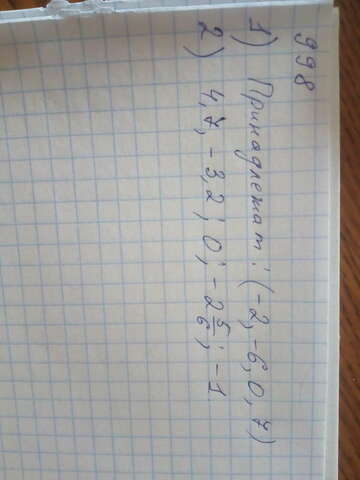 998
1) Принадлежат: (-2, -6, 0, 7)
2) 4,7; -3,2; 0; -2 5/6; -1